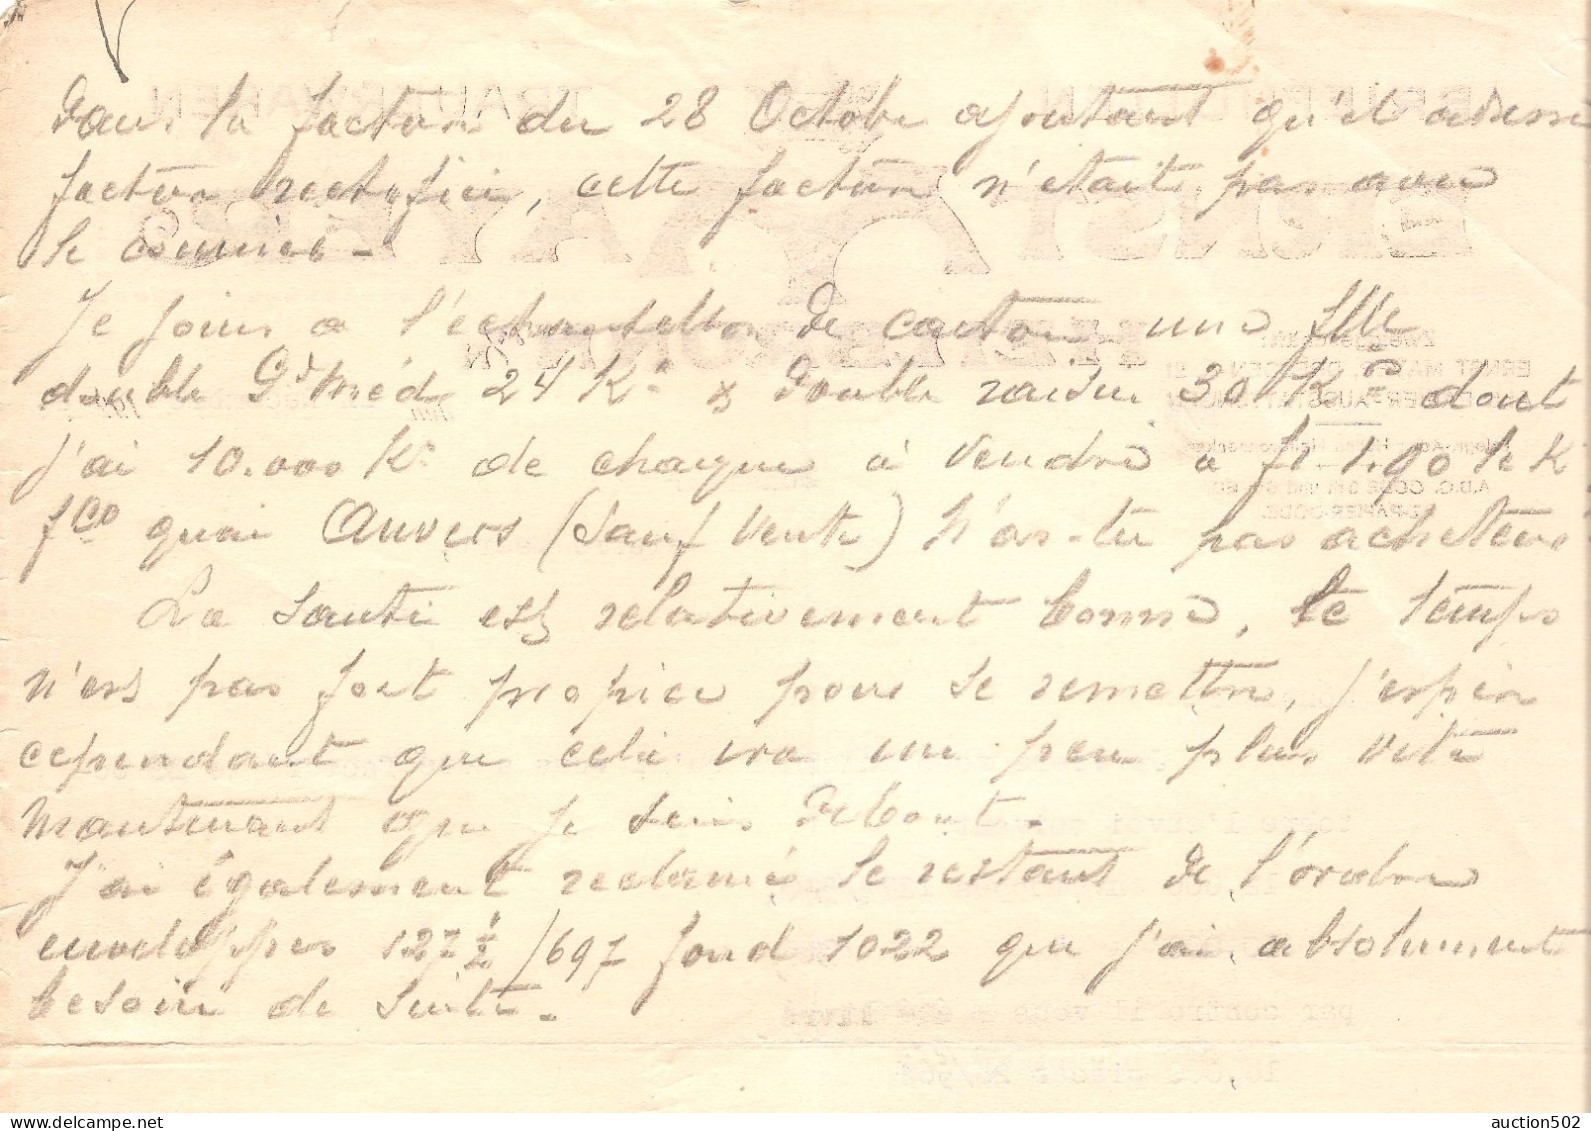 dans la facture du 28 Octobre ajoutant qu'il adresse
facture rectifiée, cette facture n'était pas avec
le courrier -
Je joins a l'échantillon de carton une flle
double Gd Méd 24 Kos & double raisin 30 Kos dont
j'ai 10.000 Ks de chaque à vendre a f 1.90 le K
fco quai Anvers (sauf vente) N'as-tu pas acheteur
La santé est relativement bonne, le temps
n'est pas fort propice pour se remettre, j'espère
cependant que cela ira un peu plus vite
maintenant que je suis debout.
J'ai également reclamé le restant de l'ordre
enveloppes 127 1/2 /697 fond 1022 que j'ai absolument
besoin de suite.
auction502